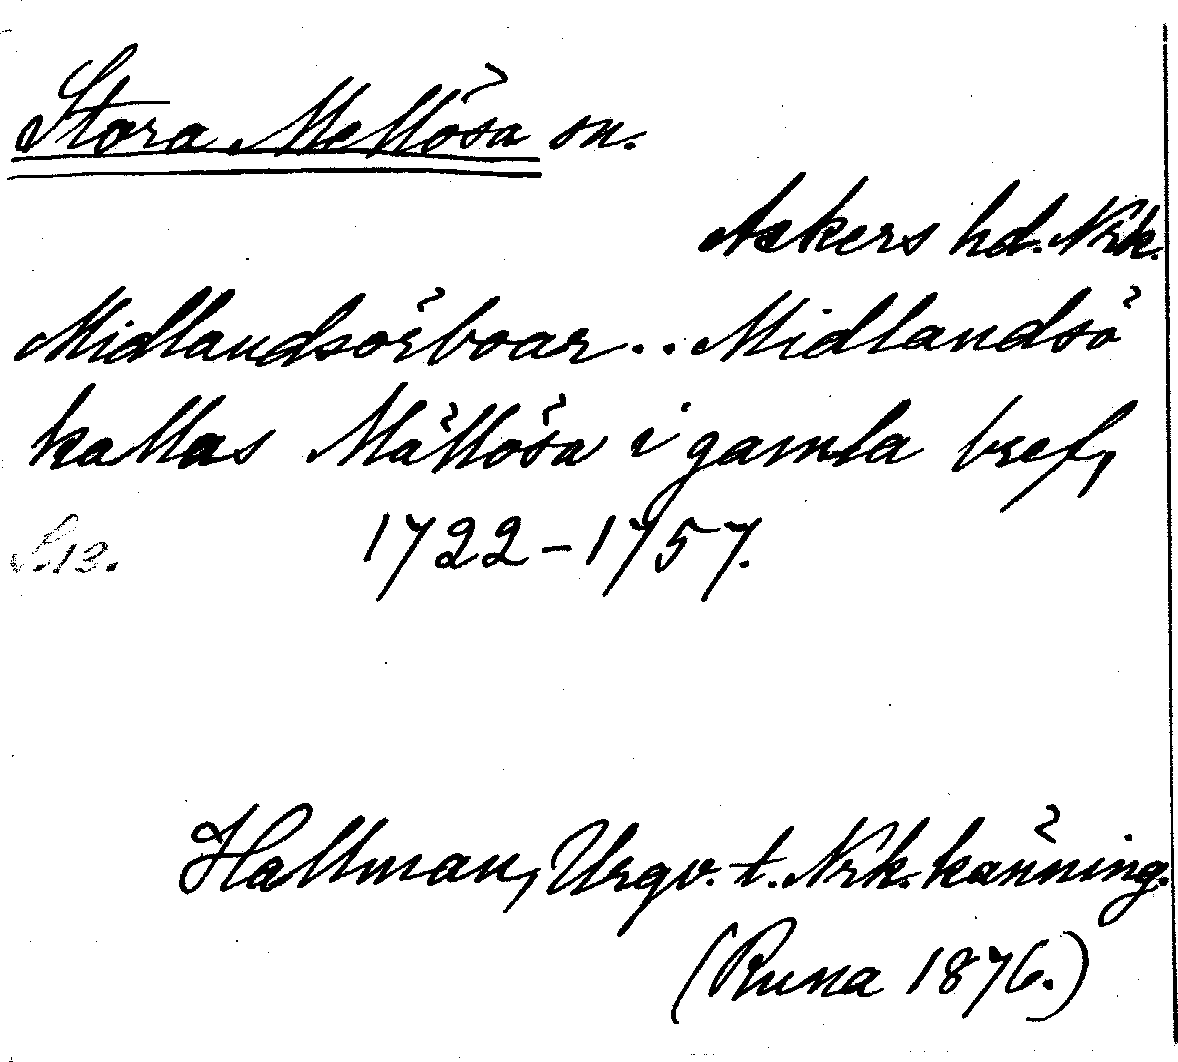 Stora Mellösa sn.
Askers hd. Nrk.
Midlandsöřboar.. Midlandsö
kallas Mällösa i gamla bref,
S.13. 1722-1757.
Hallman, Urgv. t. Nrk. känning.
(Runa 1876.)